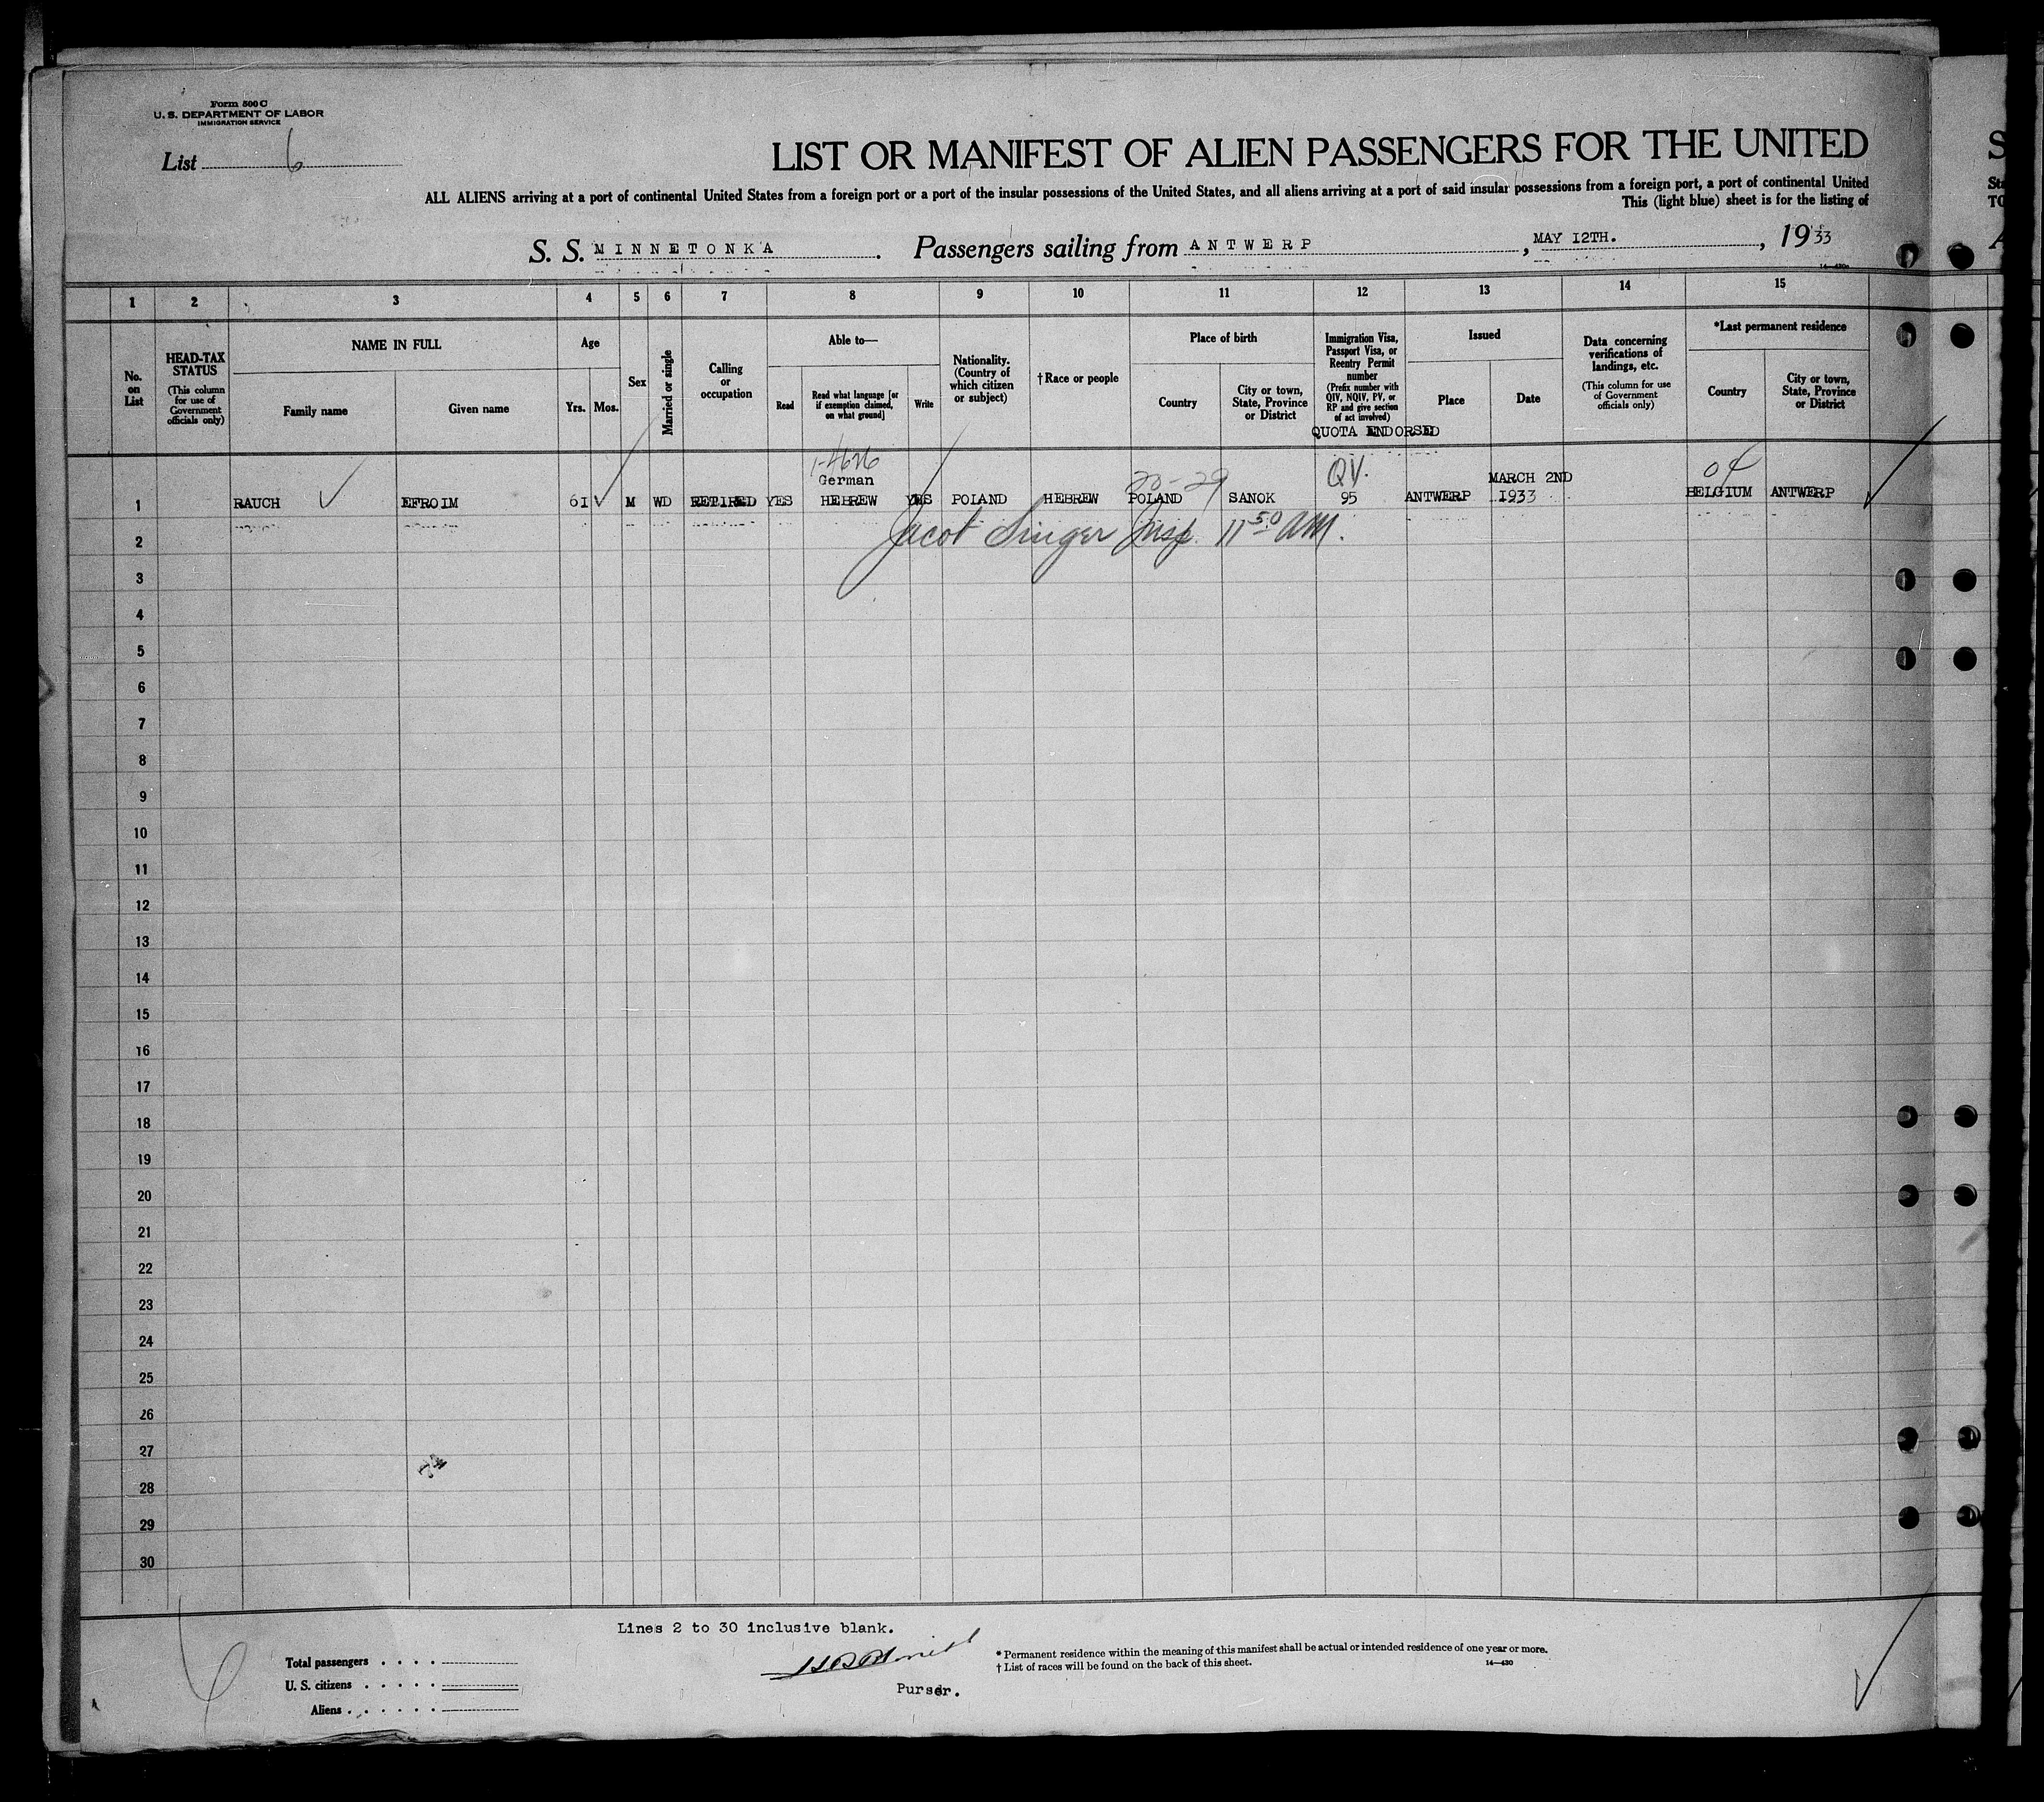 Form 500 C
U. S. DEPARTMENT OF LABOR
IMMIGRATION SERVICE
List 6
LIST OR MANIFEST OF ALIEN PASSENGERS FOR THE UNITED
ALL ALIENS arriving at a port of continental United States from a foreign port or a port of the insular possessions of the United States, and all aliens arriving at a port of said insular possessions from a foreign port, a port of continental United
This (light blue) sheet is for the listing of
S. S. MINNETONKA. Passengers sailing from ANTWERP, MAY I2TH., 1933
1 2 3 4 5 6 7 8 9 10 11 12 13 14 15
No. on List
HEAD-TAX STATUS
(This column for use of Government officials only)
NAME IN FULL
Family name
Given name
Age
Yrs. Mos.
Sex
Married or single
Calling or occupation
Able to—
Read
Read what language [or if exemption claimed, on what ground]
Write
Nationality. (Country of which citizen or subject)
† Race or people
Place of birth
Country
City or town, State, Province or District
Immigration Visa, Passport Visa, or Reentry Permit number
(Prefix number with QIV, NQIV, PV, or RP and give section of act involved)
QUOTA ENDORSED
Issued
Place
Date
Data concerning verifications of landings, etc.
(This column for use of Government officials only)
*Last permanent residence
Country
City or town, State, Province or District
1-4626
German
20-29
QV.
MARCH 2ND
1 RAUCH EFROIM 6I M WD RETIRED YES HEBREW YES POLAND HEBREW POLAND SANOK 95 ANTWERP I933 BELGIUM ANTWERP
Jacob Singer Insp. 11 50 AM.
2
3
4
5
6
7
8
9
10
11
12
13
14
15
16
17
18
19
20
21
22
23
24
25
26
27
28
29
30
Lines 2 to 30 inclusive blank.
Total passengers
U. S. citizens
Aliens
Purser.
* Permanent residence within the meaning of this manifest shall be actual or intended residence of one year or more.
† List of races will be found on the back of this sheet.
14—430